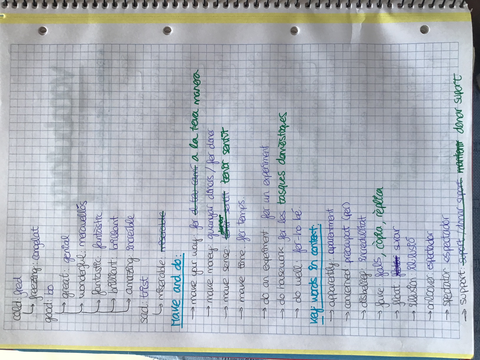 cold fred
↳ freezing congelat
good bo
↳ great genial
↳ wonderful meravellós
↳ fantastic fantàstic
↳ brilliant brillant
↳ amazing increïble
sad trist
↳ miserable miserable
Make and do:
→ make your way fer a la teva manera
→ make money guanyar diners / fer diners
→ make sense tenir sentit
→ make time fer temps
→ do an experiment fer un experiment
→ do housework fer les tasques domèstiques
→ do well fer-ho bé
Key words in context:
→ apparently aparentment
→ concerned preocupat (per)
→ disability incapacitat
→ fake fals, còpia, rèplica
→ float surar
→ illusion il·lusió
→ onlooker espectador
→ spectator espectador
→ support donar suport